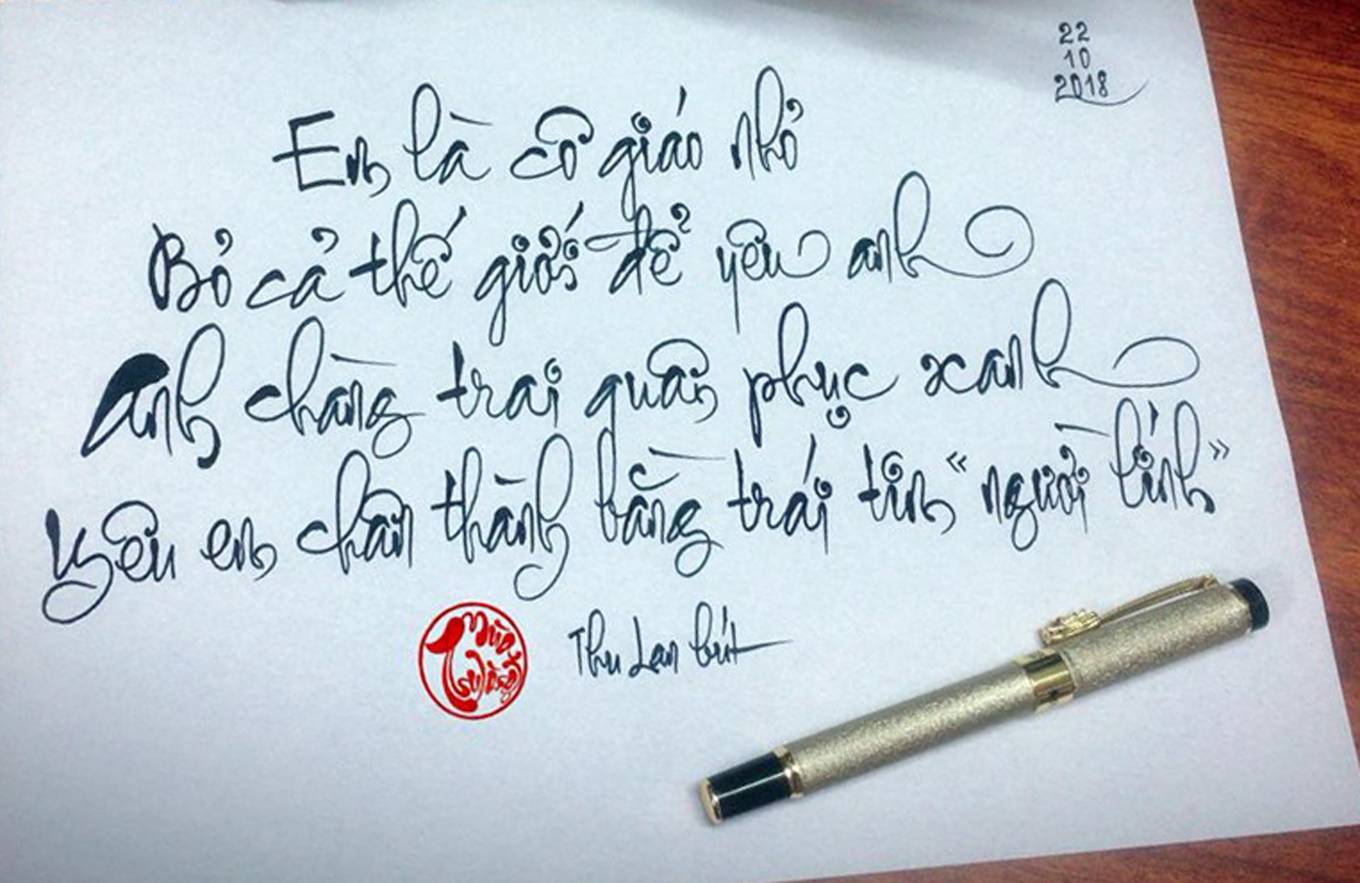 22
10
2018
Em là cô giáo nhỏ
Bỏ cả thế giới để yêu anh
Anh chàng trai quân phục xanh
Yêu em chân thành bằng trái tim "người lính"
Thu Lan bút